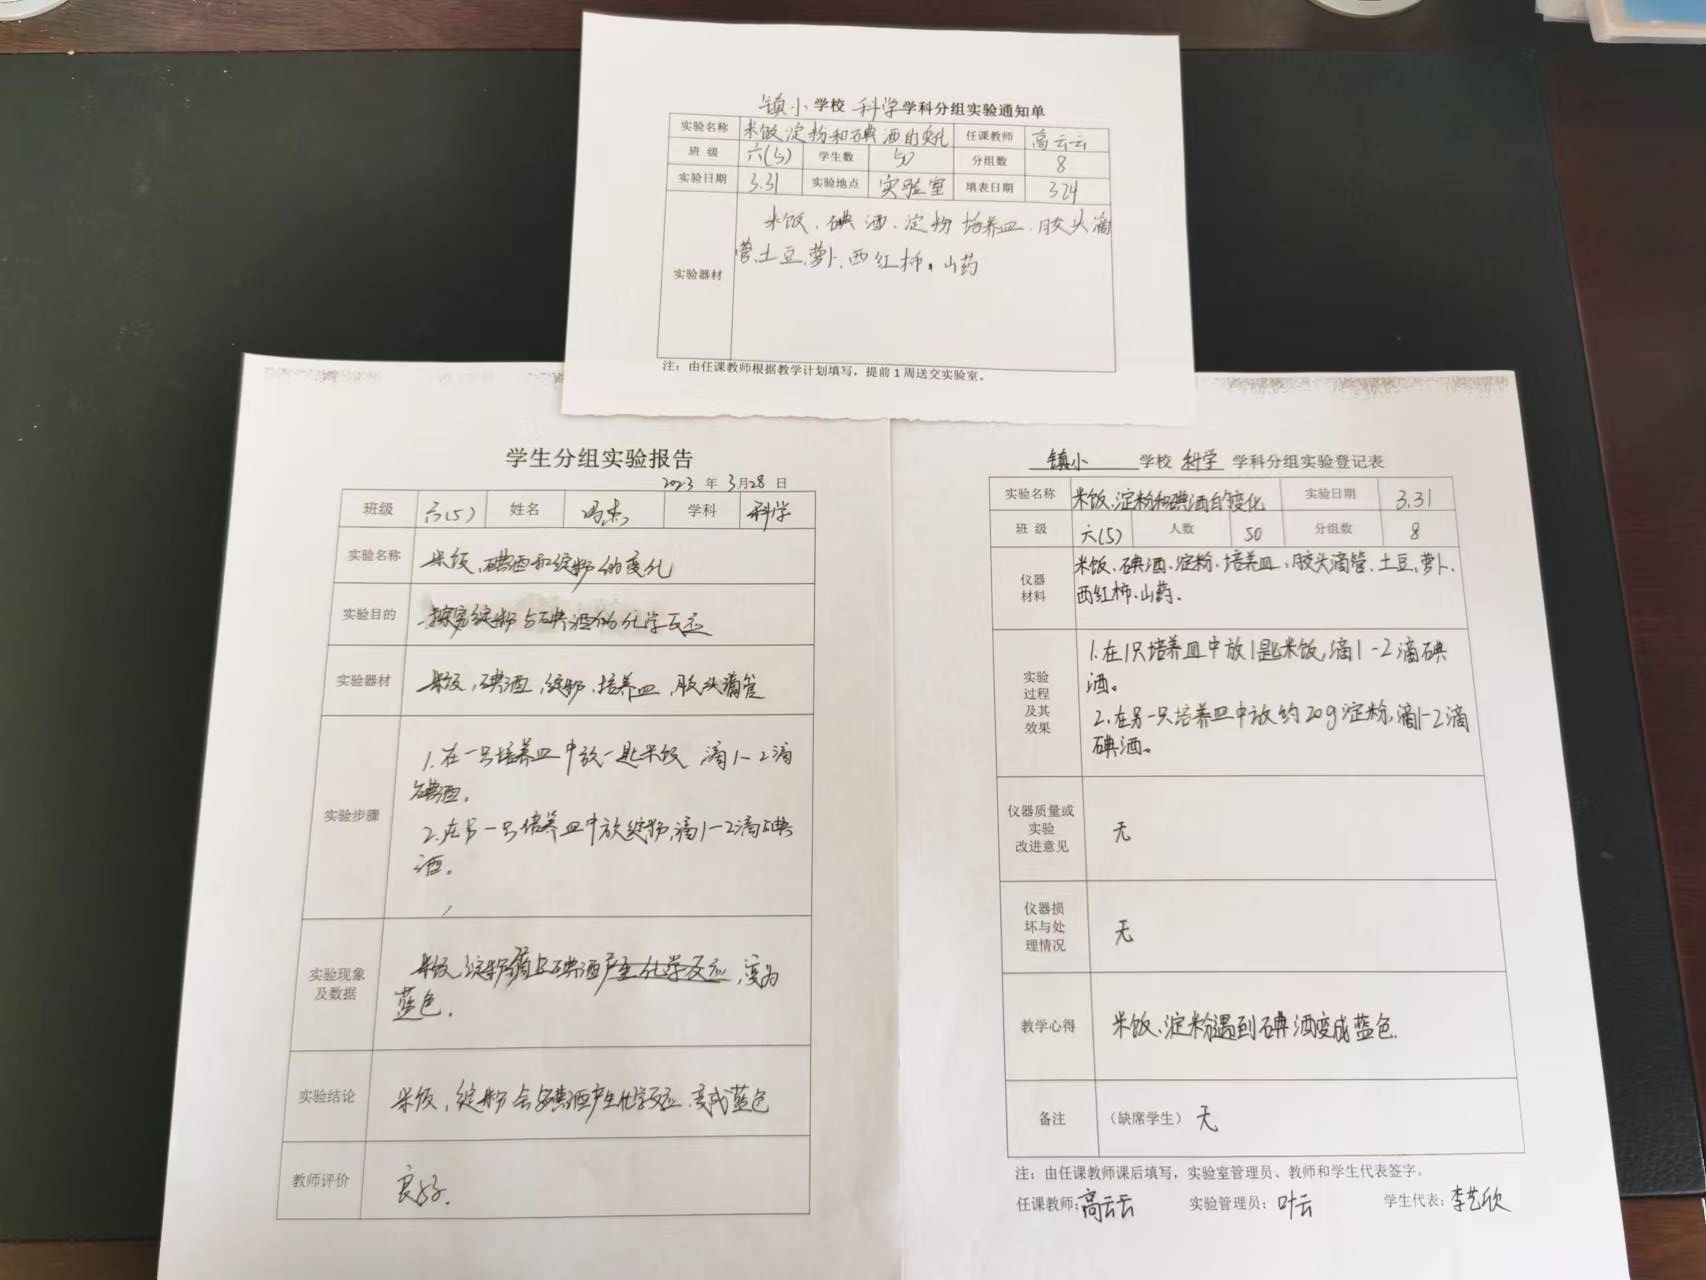 镇小学校 科学学科分组实验通知单
实验名称 米饭淀粉和碘酒的变化 任课教师 高云云
班 级 六(5) 学生数 50 分组数 8
实验日期 3.31 实验地点 实验室 填表日期 3.24
实验器材
米饭、碘酒、淀粉 培养皿、胶头滴
管、土豆、萝卜、西红柿、山药
注：由任课教师根据教学计划填写，提前1周送交实验室。
学生分组实验报告
2023 年 3月28 日
班级 六(5) 姓名 冯杰 学科 科学
实验名称 米饭、碘酒和淀粉的变化
实验目的 探究淀粉与碘酒的化学反应
实验器材 米饭、碘酒、淀粉、培养皿、胶头滴管
实验步骤
1.在一只培养皿中放一匙米饭 滴1-2滴
碘酒。
2.在另一只培养皿中放淀粉,滴1-2滴碘
酒。
实验现象
及数据
米饭、淀粉遇与碘酒产生化学反应,变为
蓝色.
实验结论 米饭、淀粉会与碘酒产生化学反应.变成蓝色
教师评价 良好.
镇小 学校 科学 学科分组实验登记表
实验名称 米饭、淀粉和碘酒的变化 实验日期 3.31
班 级 六(5) 人数 50 分组数 8
仪器
材料
米饭、碘酒、淀粉、培养皿、胶头滴管、土豆、萝卜、
西红柿、山药.
实验
过程
及其
效果
1.在1只培养皿中放1匙米饭,滴1-2滴碘
酒。
2.在另一只培养皿中放约20g淀粉,滴1-2滴
碘酒。
仪器质量或
实验
改进意见
无
仪器损
坏与处
理情况
无
教学心得 米饭、淀粉遇到碘酒变成蓝色.
备注 （缺席学生） 无
注：由任课教师课后填写，实验室管理员、教师和学生代表签字。
任课教师:高云云 实验管理员: 叶云 学生代表: 李艺欣